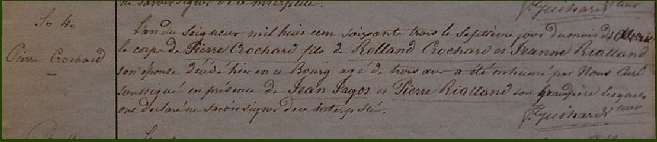 ne savoir signer de ce interpellé.
Guihard
Sr 4.
Pierre Crochard
L'an du Seigneur mil huit cent soixante trois le Septième jour du mois d'
le corps de Pierre Crochard fils de Rolland Crochard et Jeanne Rialland
son épouse décédé hier en ce Bourg agé de trois ans a été inhumé par Nous Curé
soussigné en présence de Jean Jagos et Pierre Rialland son grand père lesquels
ont déclaré ne savoir signer de ce interpellé.
Guihard